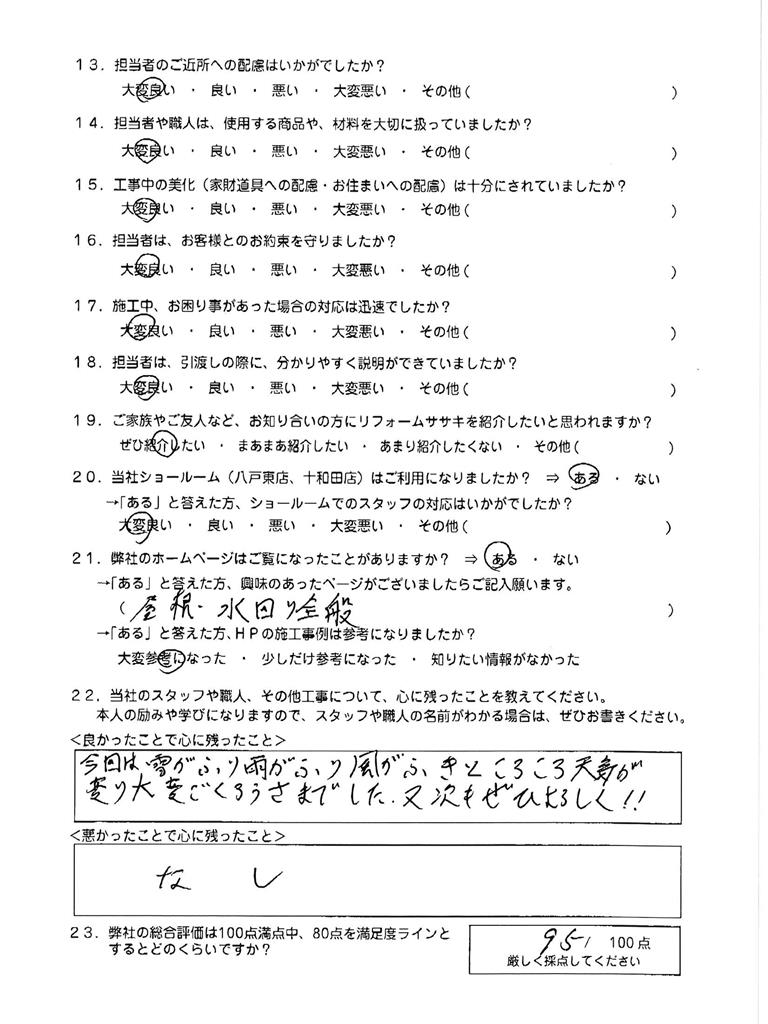 13．担当者のご近所への配慮はいかがでしたか？
大変良い ・ 良い ・ 悪い ・ 大変悪い ・ その他（ ）
14．担当者や職人は、使用する商品や、材料を大切に扱っていましたか？
大変良い ・ 良い ・ 悪い ・ 大変悪い ・ その他（ ）
15．工事中の美化（家財道具への配慮・お住まいへの配慮）は十分にされていましたか？
大変良い ・ 良い ・ 悪い ・ 大変悪い ・ その他（ ）
16．担当者は、お客様とのお約束を守りましたか？
大変良い ・ 良い ・ 悪い ・ 大変悪い ・ その他（ ）
17．施工中、お困り事があった場合の対応は迅速でしたか？
大変良い ・ 良い ・ 悪い ・ 大変悪い ・ その他（ ）
18．担当者は、引渡しの際に、分かりやすく説明ができていましたか？
大変良い ・ 良い ・ 悪い ・ 大変悪い ・ その他（ ）
19．ご家族やご友人など、お知り合いの方にリフォームササキを紹介したいと思われますか？
ぜひ紹介したい ・ まあまあ紹介したい ・ あまり紹介したくない ・ その他（ ）
20．当社ショールーム（八戸東店、十和田店）はご利用になりましたか？ ⇒ ある ・ ない
→「ある」と答えた方、ショールームでのスタッフの対応はいかがでしたか？
大変良い ・ 良い ・ 悪い ・ 大変悪い ・ その他（ ）
21．弊社のホームページはご覧になったことがありますか？ ⇒ ある ・ ない
→「ある」と答えた方、興味のあったページがございましたらご記入願います。
（ 屋根・水回り全般 ）
→「ある」と答えた方、HPの施工事例は参考になりましたか？
大変参考になった ・ 少しだけ参考になった ・ 知りたい情報がなかった
22．当社のスタッフや職人、その他工事について、心に残ったことを教えてください。
本人の励みや学びになりますので、スタッフや職人の名前がわかる場合は、ぜひお書きください。
<良かったことで心に残ったこと>
今回は雪がふり雨がふり風がふきところころ天気が
変り大変ごくろうさまでした．又次もぜひよろしく!!
<悪かったことで心に残ったこと>
なし
23．弊社の総合評価は100点満点中、80点を満足度ラインと
するとどのくらいですか？
95/ 100点
厳しく採点してください